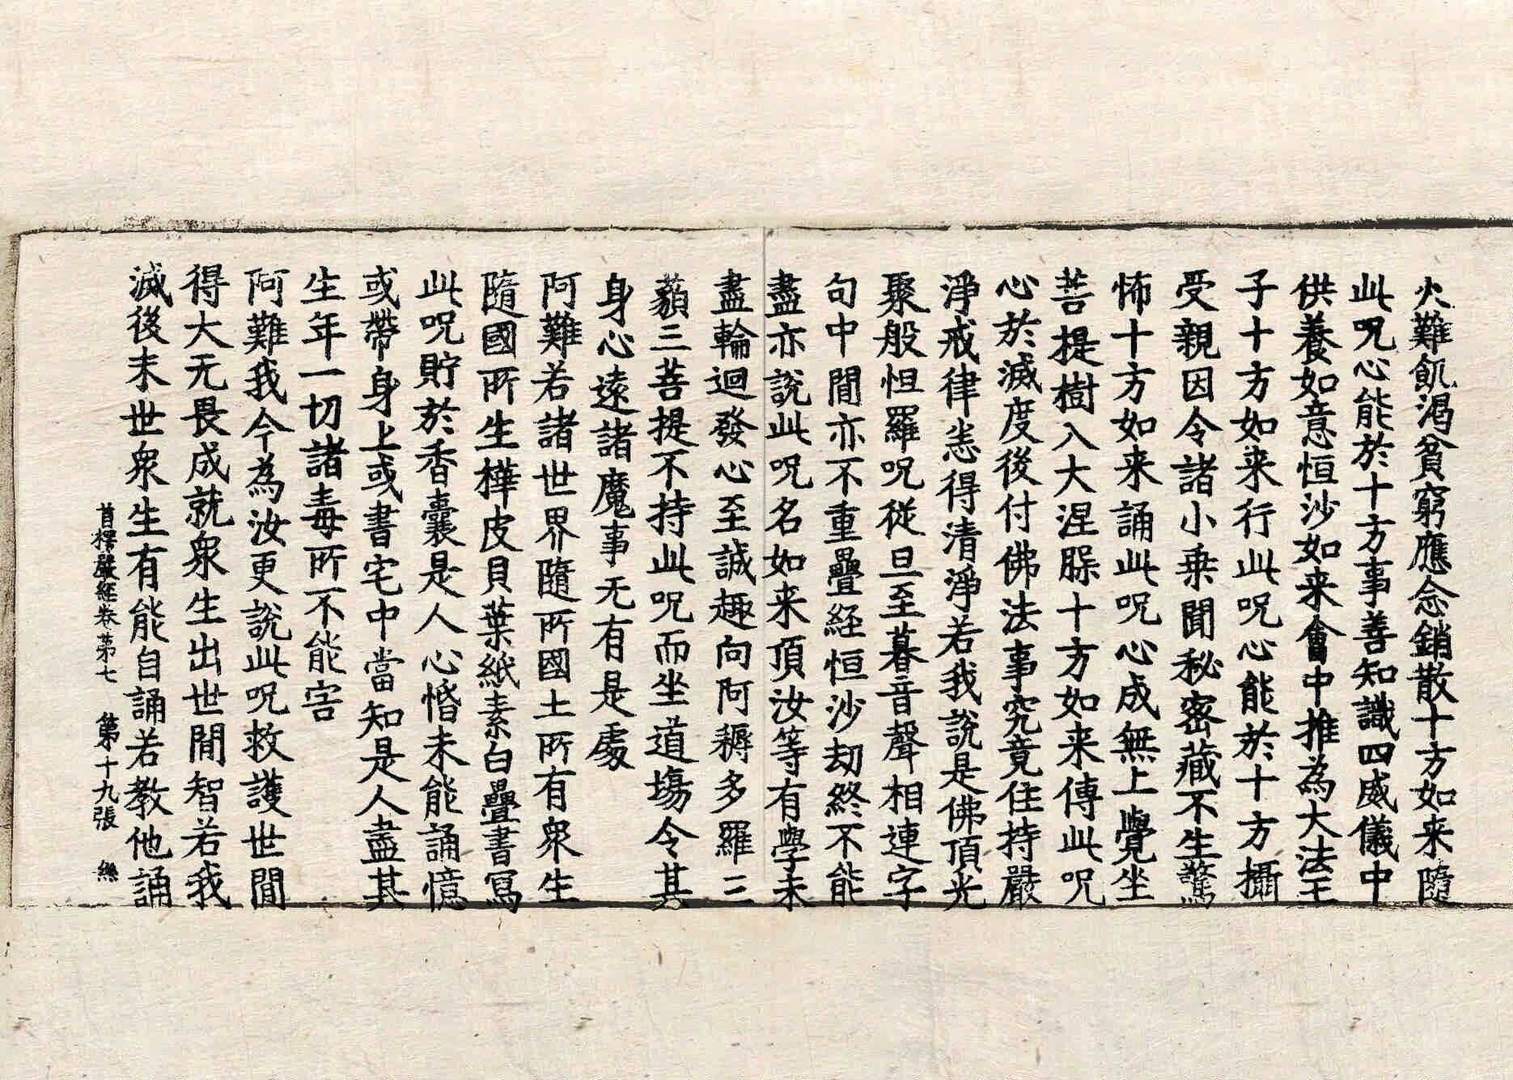 火難飢渴貧窮應念銷散十方如来隨
此呪心能於十方事善知識四威儀中
供養如意恒沙如来會中推為大法王
子十方如来行此呪心能於十方攝
受親因令諸小乗聞秘密藏不生驚
怖十方如来誦此呪心成無上覺坐
菩提樹入大涅槃十方如来傳此呪
心於滅度後付佛法事究竟住持嚴
淨戒律悉得清淨若我說是佛頂光
聚般怛羅呪從旦至暮音聲相連字
句中間亦不重疊経恒沙劫終不能
盡亦說此呪名如来頂汝等有學未
盡輪迴發心至誠趣向阿耨多羅三
藐三菩提不持此呪而坐道塲令其
身心遠諸魔事无有是處
阿難若諸世界隨所國土所有衆生
隨國所生樺皮貝葉紙素白疊書寫
此呪貯於香囊是人心惛未能誦憶
或帶身上或書宅中當知是人盡其
生年一切諸毒所不能害
阿難我今為汝更說此呪救護世間
得大无畏成就衆生出世間智若我
滅後末世衆生有能自誦若教他誦
首楞嚴経卷苐七 苐十九張 絲